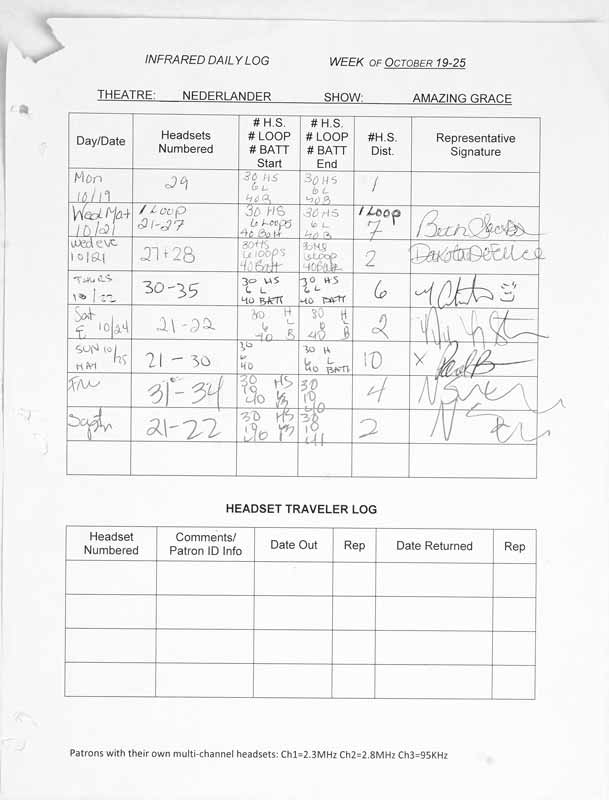 INFRARED DAILY LOG WEEK OF OCTOBER 19-25
THEATRE: NEDERLANDER SHOW: AMAZING GRACE
Day/Date
Headsets Numbered
# H.S. # LOOP # BATT Start
# H.S. # LOOP # BATT End
#H.S. Dist.
Representative Signature
Mon 10/19
29
30 HS 6 L 40 B
30 HS 6 L 40 B
1
Wed Mat 10/21
1 Loop 21-27
30 HS 6 Loops 40 Batt
30 HS 6 L 40 B
1 Loop 7
wed eve 10/21
27+28
30HS 6 loops 40 Batt
30HS 6 loop 40 Batt
2
THURS 10/22
30-35
30 HS 6 L 40 BATT
30 HS 6 L 40 BATT
6
Sat E 10/24
21-22
30 H 6 L 40 B
30 H 6 L 40 B
2
SUN 10/25 MAT
21-30
30 6 40
30 H 6 L 40 BATT
10
X
Fri
31-34
30 HS 10 40 B
30 10 40
4
21-22
30 HS 10 40 B
30 10
2
HEADSET TRAVELER LOG
Headset Numbered
Comments/ Patron ID Info
Date Out
Rep
Date Returned
Rep
Patrons with their own multi-channel headsets: Ch1=2.3MHz Ch2=2.8MHz Ch3=95KHz